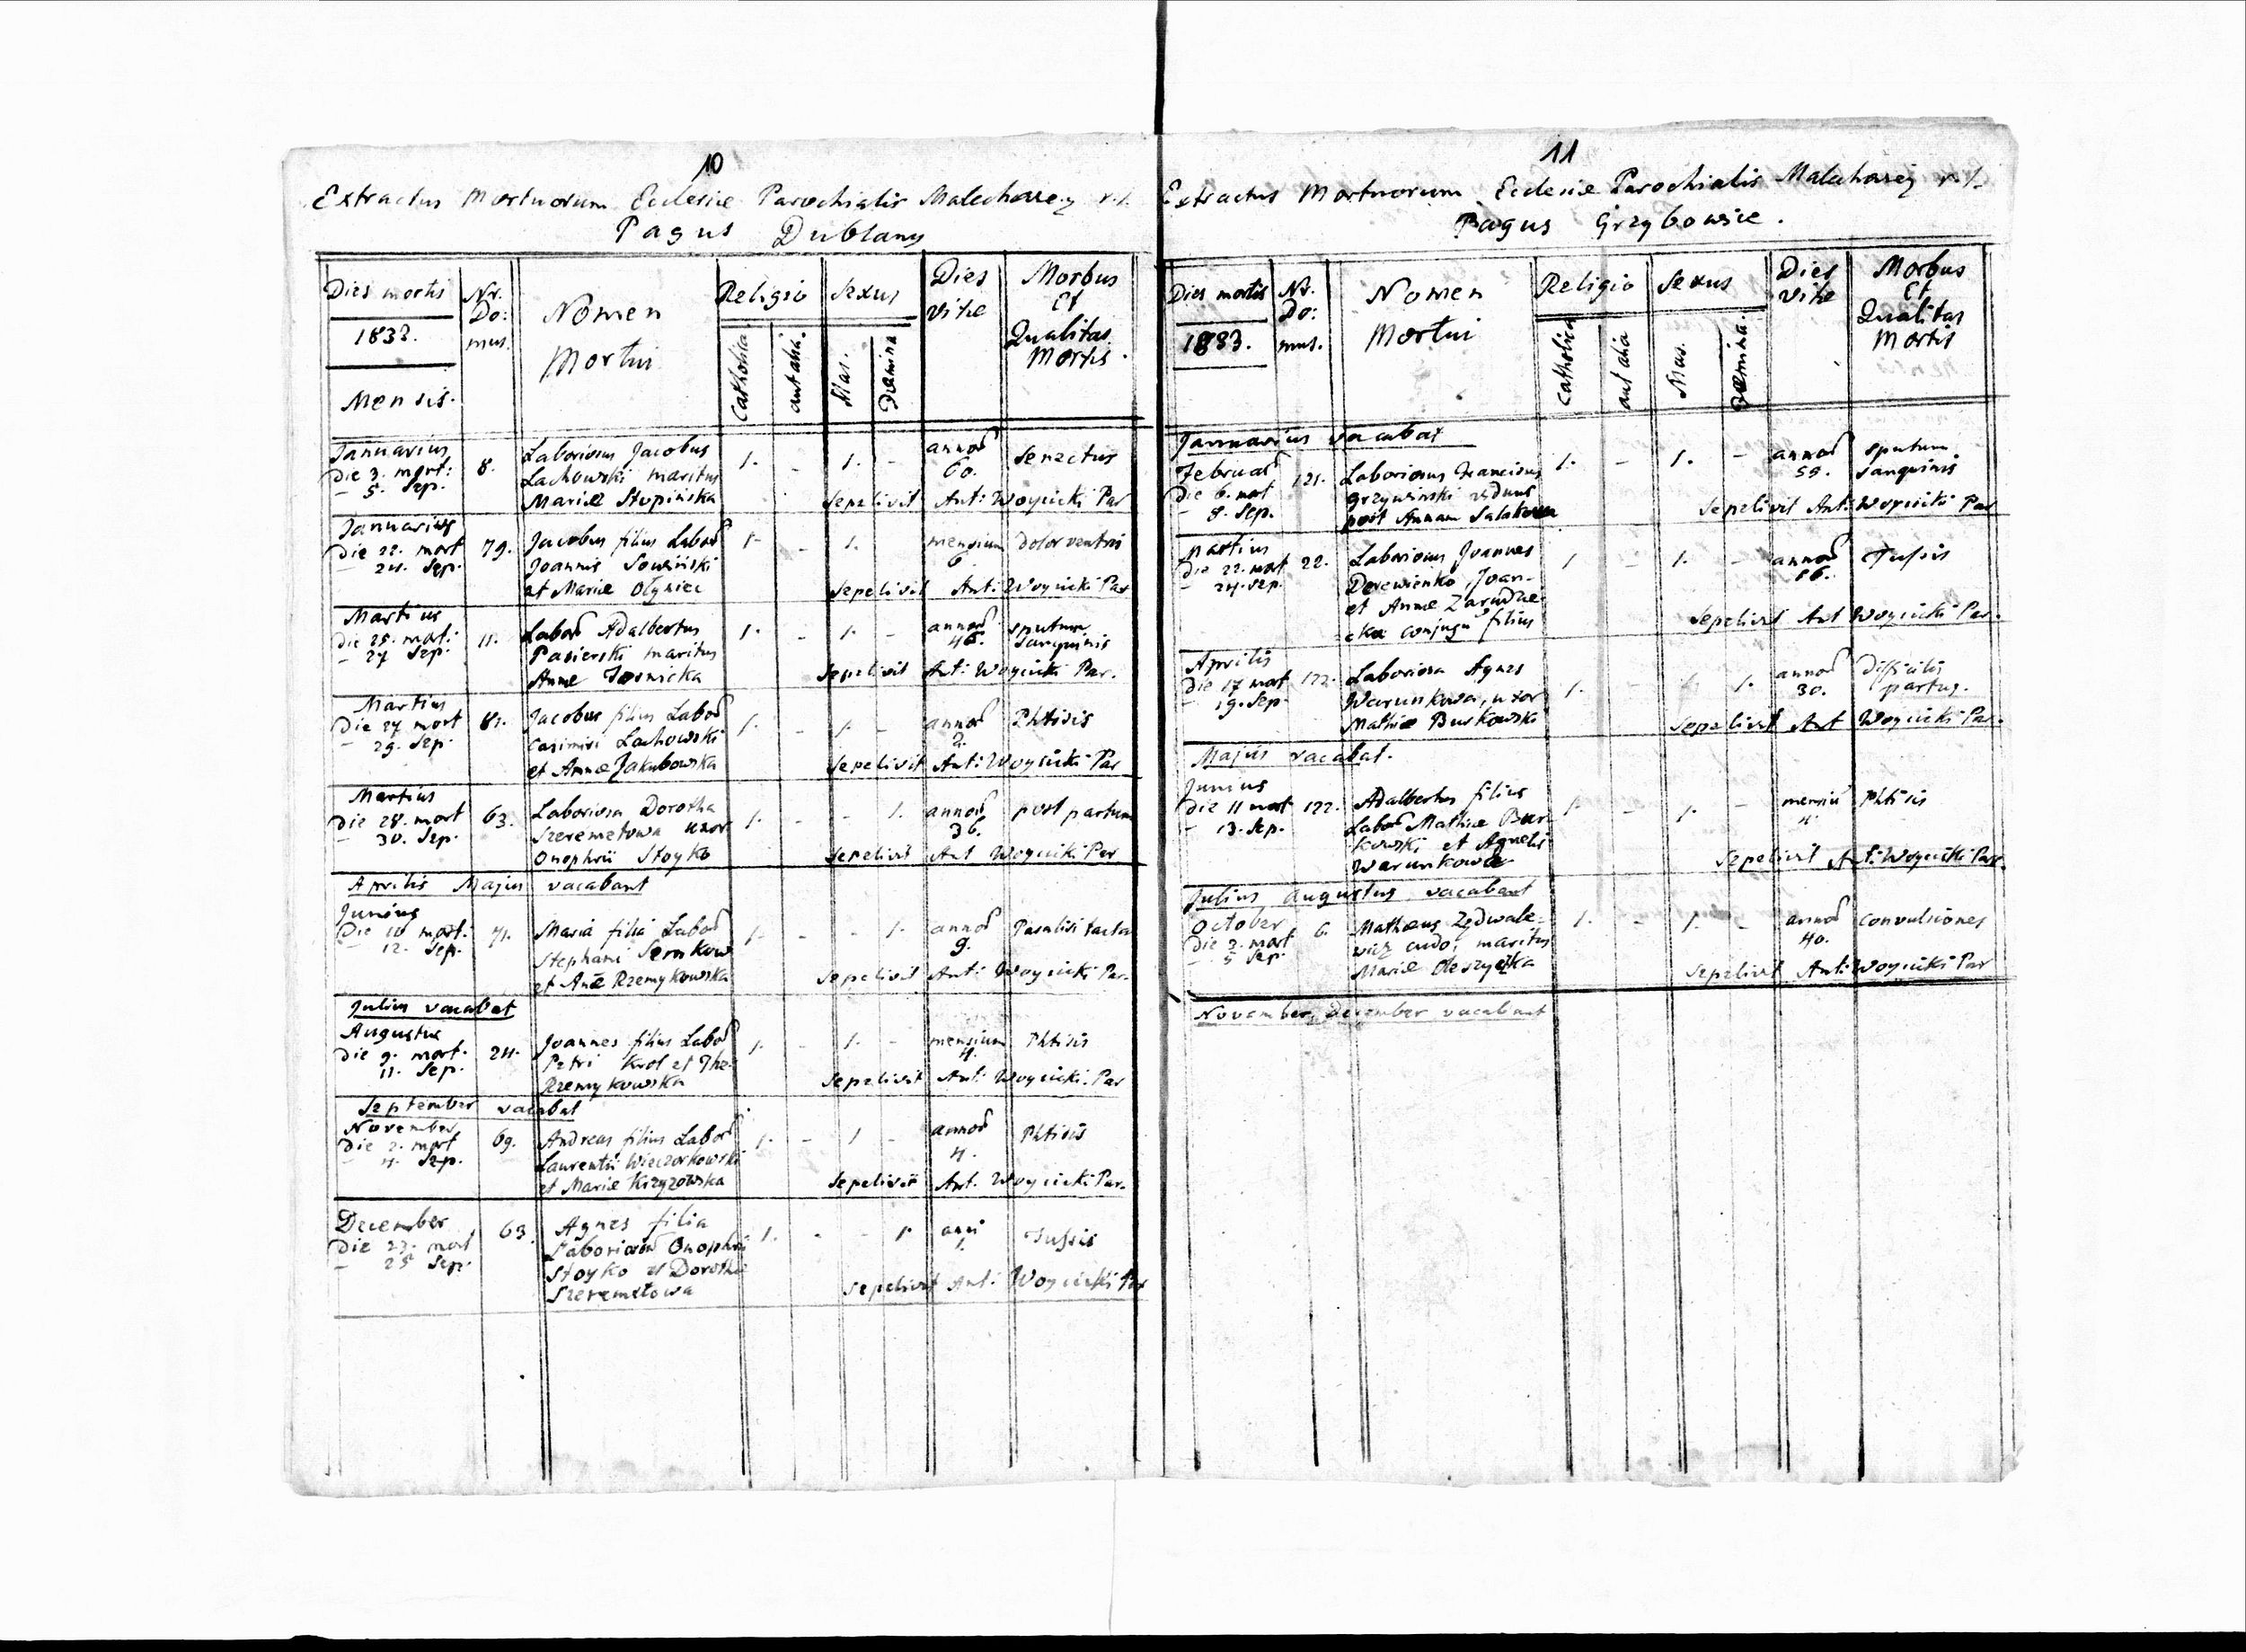 10
Extractus Mortuorum Ecclesiæ Parochialis Malechovey r. l.
Pagus Dublany
Dies mortis
1833.
Mensis.
Nr. Do: mus.
Nomen
Mortui
Religio
Catholica
aut alia.
Sexus
Mas.
Fæmina
Dies
vitæ
Morbus
Et
Qualitas
Mortis.
Januarius
Die 3. mort:
– 5. Sep.
8.
Laboriosus Jacobus
Lachowski maritus
Mariæ Stopińska
1. - 1. -
annor
60.
Senectus
Sepelivit Ant: Woycicki Par
Januarius
Die 22. mort
– 24. Sep.
79.
Jacobus filius Labor
Joannis Sowiński
et Mariæ Olyniec
1. - 1.
mensium
6
Dolor ventris
Sepelivit Ant: Woycicki Par
Martius
Die 25. mort:
– 27 Sep.
11.
Labor Adalbertus
Pasierski maritus
Annæ
1. - 1. -
annor
46.
sputum
Sanguinis
Sepelivit Ant: Woycicki Par.
Martius
Die 27 mort
– 29. Sep.
81.
Jacobus filius Labor
Casimiri Lachowski
et Annæ Jakubowska
1. - 1. -
annor
2.
Phtisis
Sepelivit Ant: Woycicki Par
Martius
Die 28. mort
– 30. Sep.
63.
Laboriosa Dorotha
Szeremetowa uxor
Onophrii Stoyko
1. - - 1.
annor
36.
post partum
Sepelivit Ant Woycicki Par
Aprilis Majus vacabant
Junius
Die 10 mort:
– 12. Sep.
71.
Maria filia Labor
Stephani
et Añæ Rzemykowska
1. - - 1.
annor
9.
Paralisi tacta
Sepelivit Ant: Woycicki Par.
Julius vacabat
Augustus
Die 9. mort.
11. Sep.
24.
Joannes filius Labor
Petri Krol et The:
Rzemykowska
1. - 1. -
mensium
4.
Phtisis
Sepelivit Ant: Woycicki. Par
September vacabat
November
Die 2. mort
– 4. Sep.
69.
Andreas filius Labor
Laurentii Wieczorkowski
et Mariæ Krzyzowska
1. - 1 -
annor
4.
Phtisis
Sepelivit Ant. Woycicki Par.
December
Die 23. mort
– 25 Sep.
63.
Agnes filia
Laboriosor Onophrii
Stoyko et Dorothæ
Szeremetowa
1. - - 1.
anni
1.
Tussis
Sepelivit Ant: Woycicki Par
11
Extractus Mortuorum Ecclesiæ Parochialis Malechovey r. l.
Pagus Grzybowice.
Dies mortis
1833.
Nr. Do: mus.
Nomen
Mortui
Religio
Catholica
aut alia
Sexus
Mas.
Fæmina.
Dies
vitæ
Morbus
Et
Qualitas
Mortis
Januarius vacabat
Februar
Die 6. mort
– 8. Sep.
121.
Laboriosus Franciscus
Grzywinski viduus
post Annam
1. - 1. -
annor
55.
sputum
Sanguinis.
Sepelivit Ant: Woycicki Par
Martius
Die 22. mort
– 24. Sep.
22.
Laboriosus Joannes
Derewienko, Joan-
et Annæ Zarudze-
cka conjugu filius
1 - 1. -
annor
16.
Tussis
Sepelivit Ant Woycicki Par.
Aprilis
Die 17 mort
– 19. Sep.
122.
Laboriosa Agnes
Warunkowa, uxor
Mathiæ Burkowski
1. - 1.
annor
30.
Difficilis
partus.
Sepelivit Ant Woycicki Par.
Majus vacabat.
Junius
Die 11 mort
– 13. Sep.
122.
Adalbertus filius
Labor Mathiæ Bur-
kowski et Agnetis
Warunkowa
1. - 1. -
mensiu
4.
Phtisis
Sepelivit Ant: Woycicki Par.
Julius, Augustus vacabant
October
Die 3. mort
– 5 Sep.
6.
Mathæus Zydwale-
wicz cudo, maritus
Mariæ Oleszycka
1. - 1. -
annor
40.
convulsiones
Sepelivit Ant: Woycicki Par
November, December vacabant